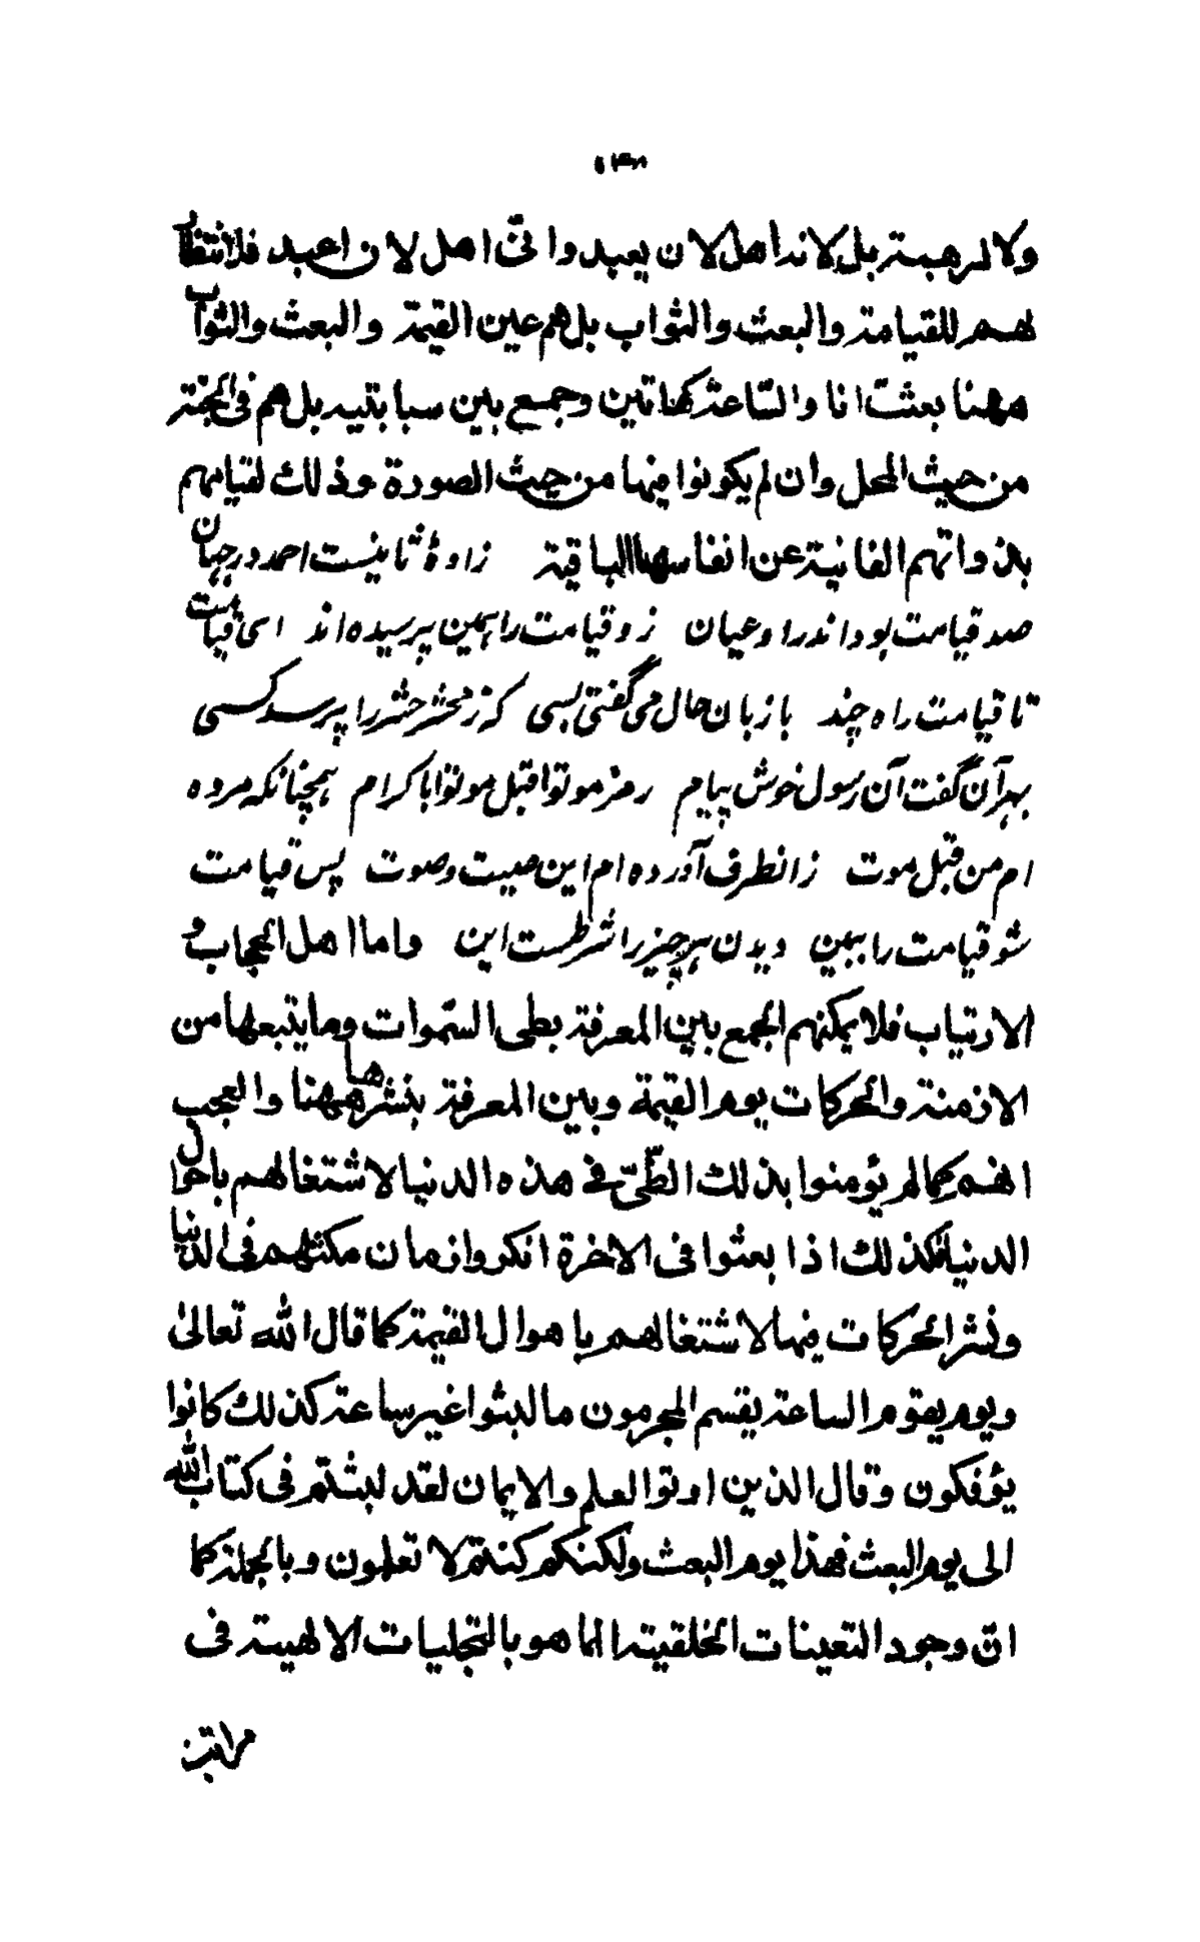 ولا لرهبة بل لانه اهل لان يعبد وانى اهل لان اعبد فلا انتظار
لهم للقيامة والبعث والثواب بل هم عين القيمة والبعث والثواب
ههنا بعثت انا والسّاعة كهاتين وجمع بين سبابتيه بل هم فى الجنة
من حيث المحل وان لم يكونوا فيها من حيث الصورة وذلك لقيامهم
بذواتهم الفانية عن انفاسها الباقية زادهٔ ثانيست احمد در جهان
صد قيامت بود اندر او عيان زو قيامت را همين پرسيده اند اى قيامت
تا قيامت راه چند با زبان حال مى گفتى بسى كه ز محشر حشر را پرسد كسى
بهر آن گفت آن رسول خوش پيام رمز موتوا قبل موتوا يا كرام همچنانكه مرده
ام من قبل موت زانطرف آورده ام اين صيت وصوت پس قيامت
شو قيامت را ببين ديدن هر چيز را شرطست اين واما اهل الحجاب و
الارتياب فلا يمكنهم الجمع بين المعرفة بطى السّموات وما يتبعها من
الازمنة والحركات يوم القيمة وبين المعرفة بنشرها ههنا والعجب
انهم كما لم يؤمنوا بذلك الطّىّ فى هذه الدنيا لاشتغالهم باحوال
الدنيا فكذلك اذا بعثوا فى الاخرة انكروا زمان مكثهم فى الدنيا
ونشر الحركات فيها لاشتغالهم باهوال القيمة كما قال الله تعالىٰ
ويوم يقوم الساعة يقسم المجرمون ما لبثوا غير ساعة كذلك كانوا
يؤفكون وقال الذين اوتوا العلم والايمان لقد لبثتم فى كتاب الله
الى يوم البعث فهذا يوم البعث ولكنكم كنتم لا تعلمون وبالجملة كما
انّ وجود التعينات الخلقية انما هو بالتجليات الالهية فى
مراتب